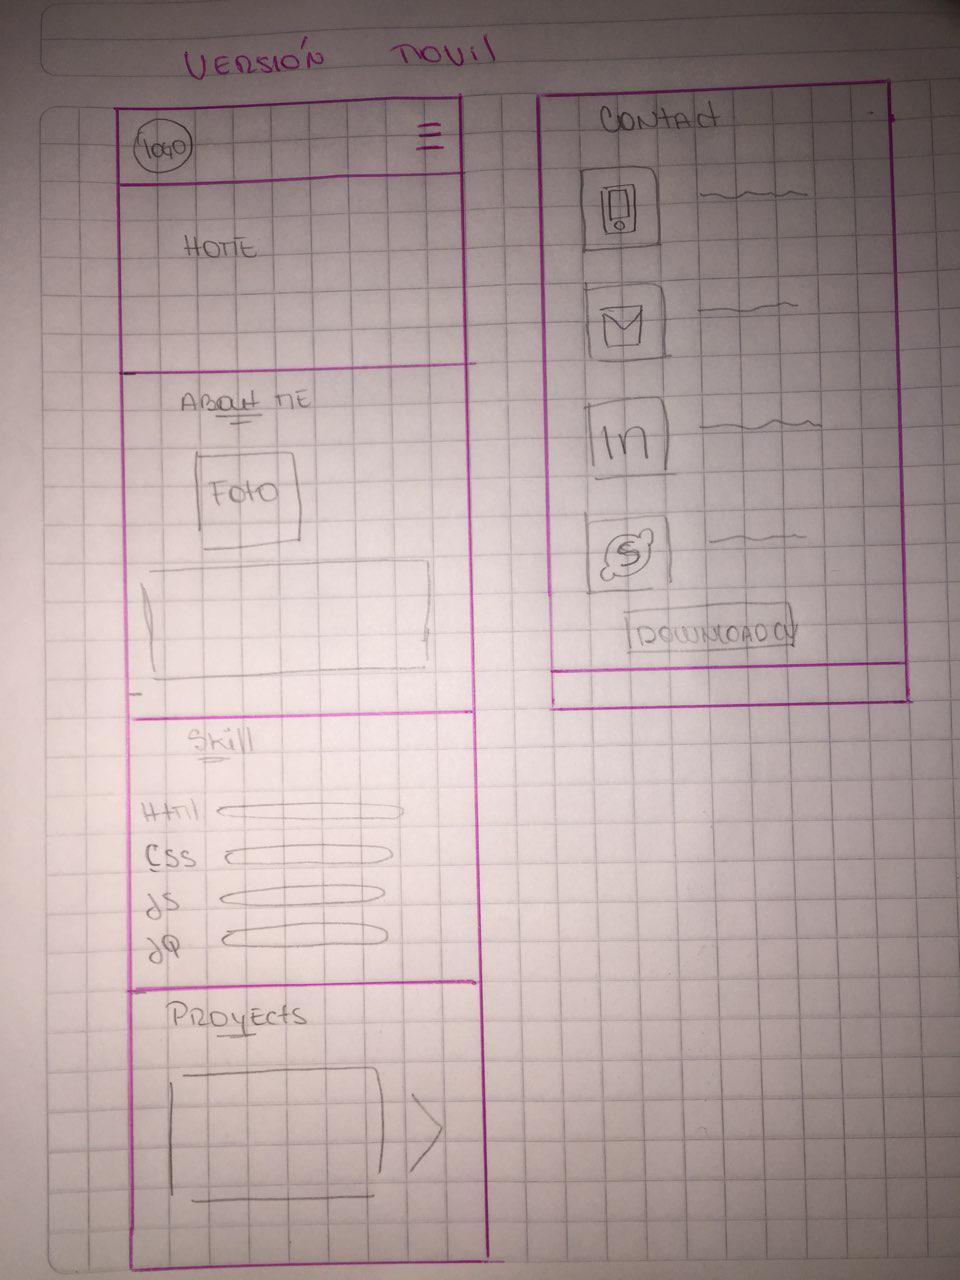 VERSIÓN MOVIL
logo
HOME
ABOUT ME
Foto
Skill
Html
CSS
JS
JQ
PROYECTS
CONTACT
in
S
DOWNLOAD CV